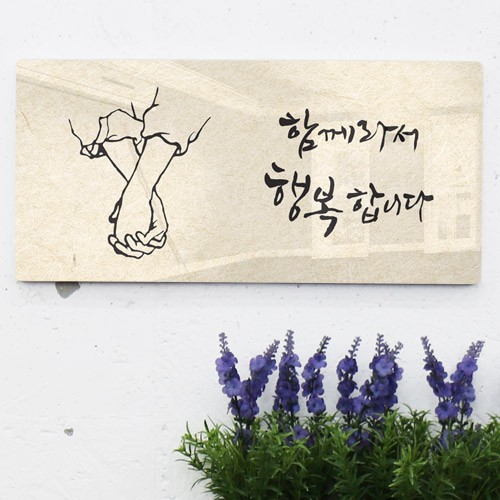 함께라서
행복합니다